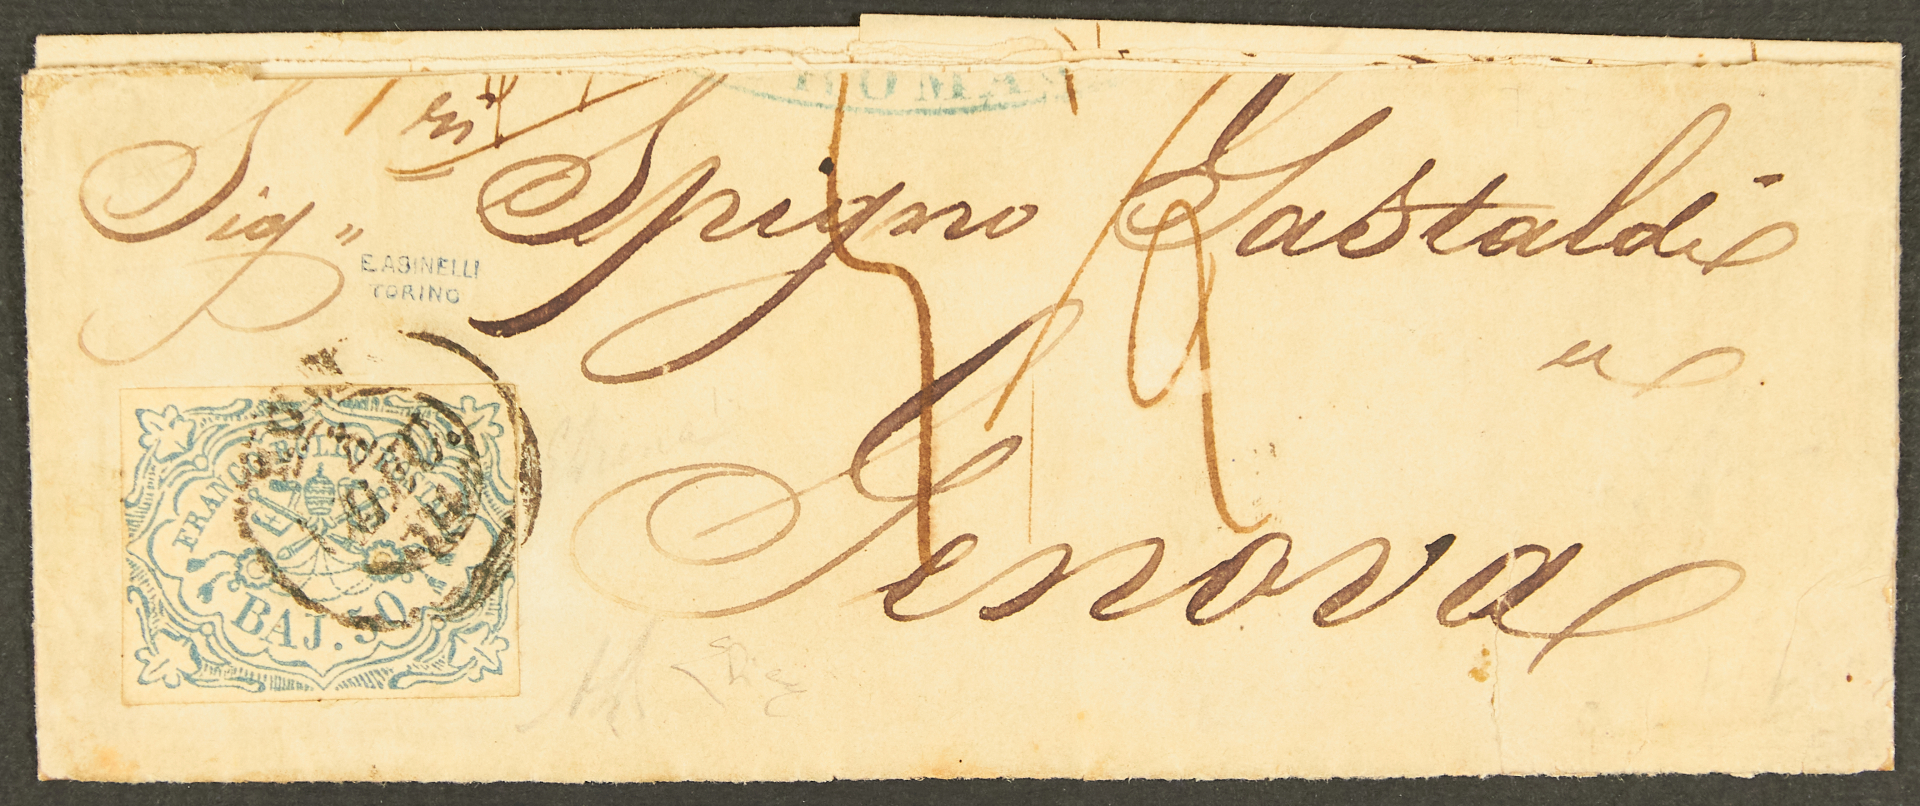 ROMA
Sigri Spigno Gastaldi
E. ASINELLI
TORINO
FRANCO BOLLO POSTALE
BAJ. 50
Genova